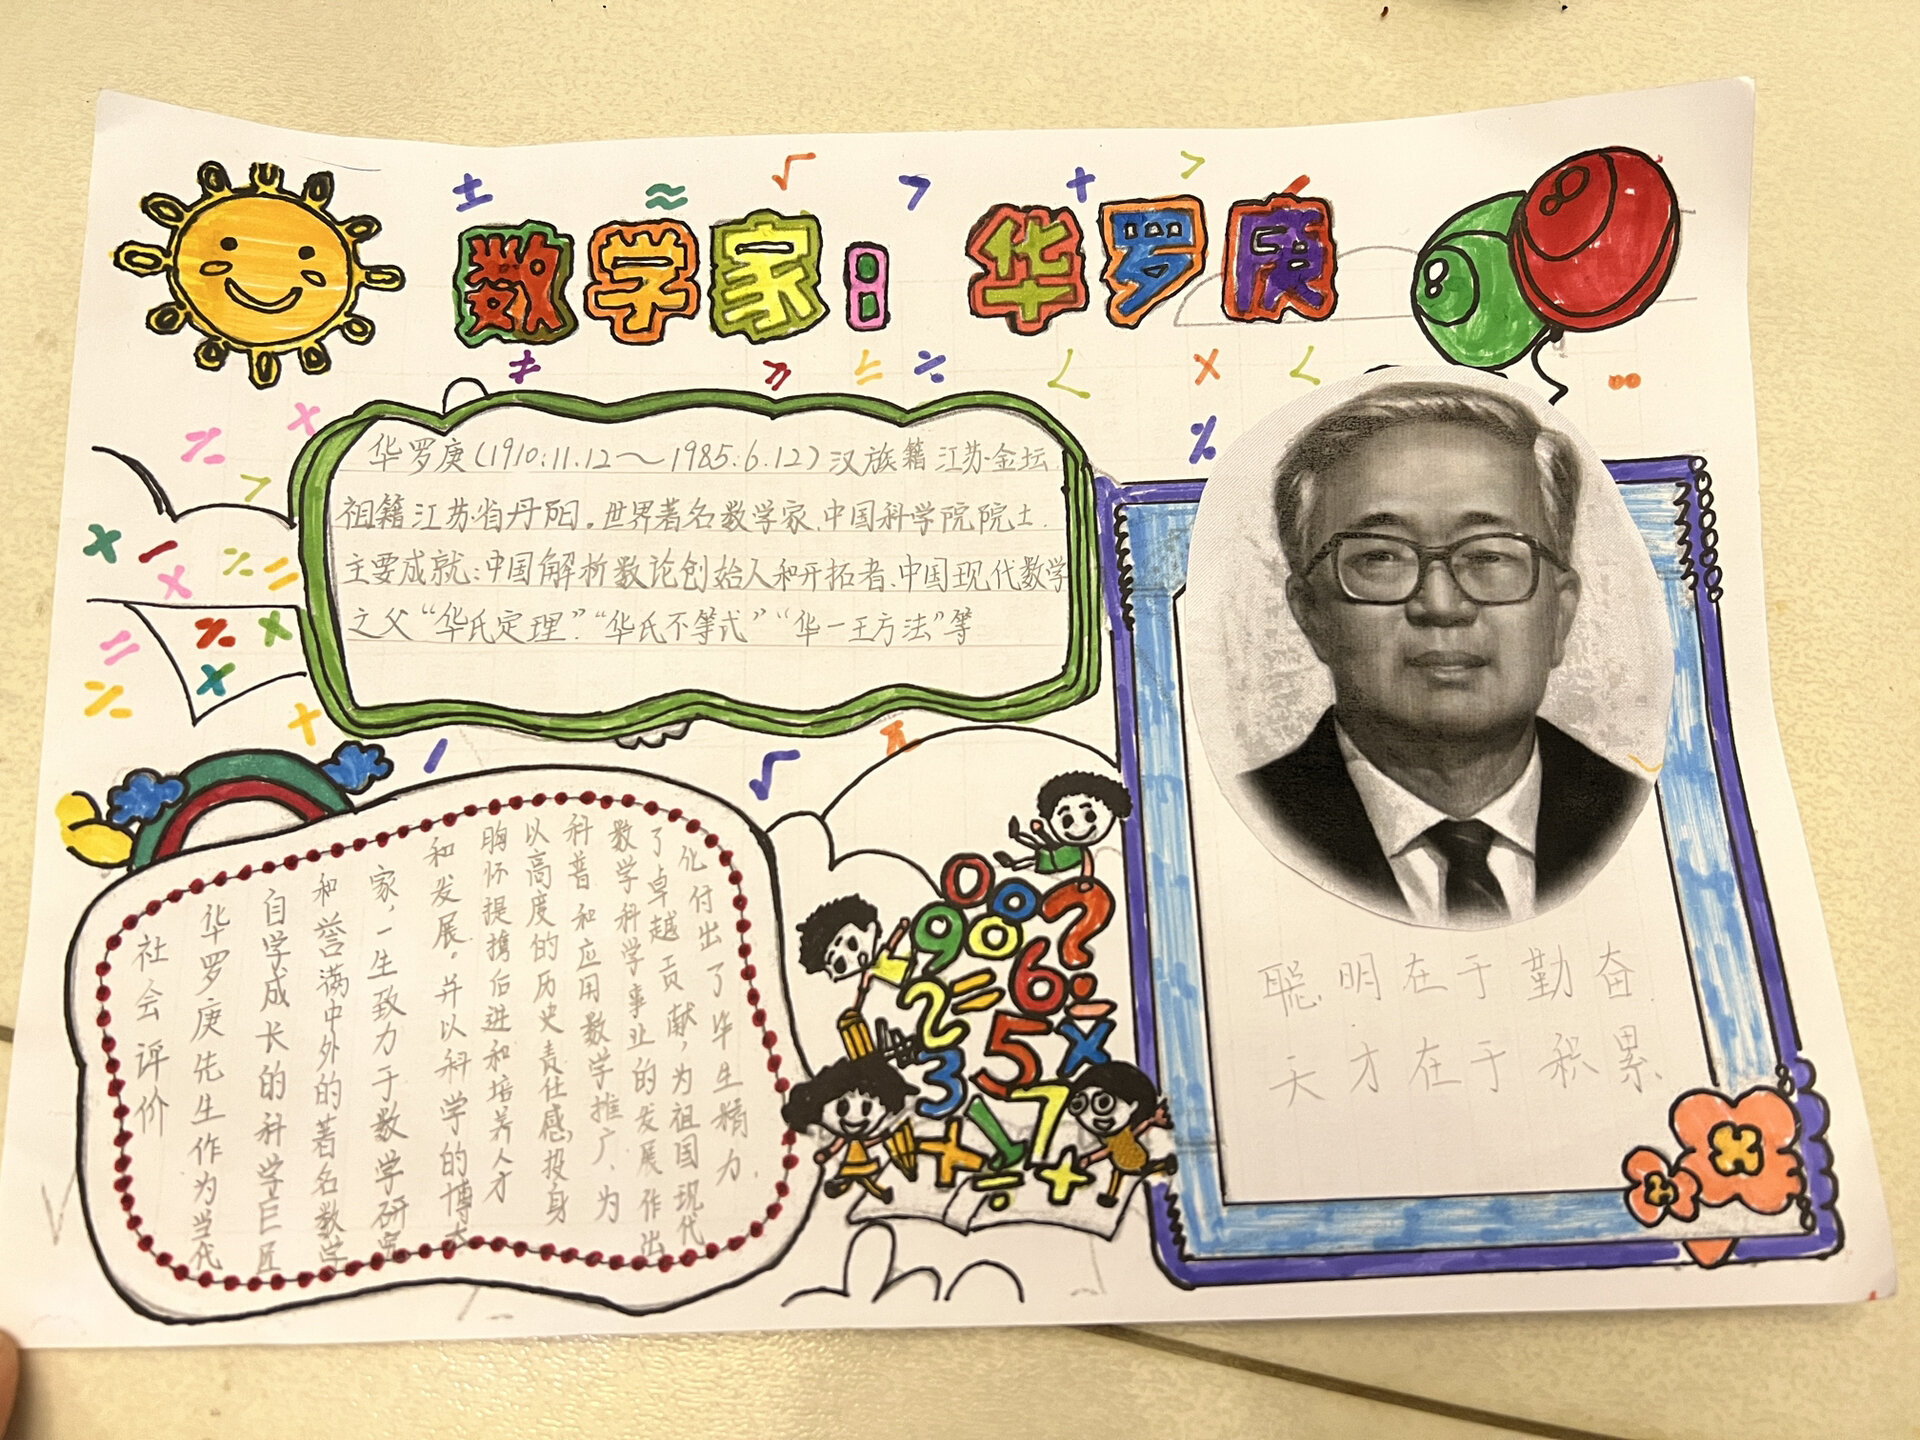 数学家:华罗庚
华罗庚(1910.11.12～1985.6.12)汉族籍江苏金坛.
祖籍江苏省丹阳。世界著名数学家、中国科学院院士.
主要成就:中国解析数论创始人和开拓者、中国现代数学
之父“华氏定理”.“华氏不等式”“华一王方法”等
社会评价
华罗庚先生作为当代
自学成长的科学巨匠
和誉满中外的著名数学
家,一生致力于数学研究
和发展,并以科学的博大
胸怀提携后进和培养人才
以高度的历史责任感,投身
科普和应用数学推广、为
数学科学事业的发展作出
了卓越贡献,为祖国现代
化付出了毕生精力.
0 0 ?
9 8 6
2 =
3 5 ÷ ×
+ 7
÷ +
聪明在于勤奋
天才在于积累